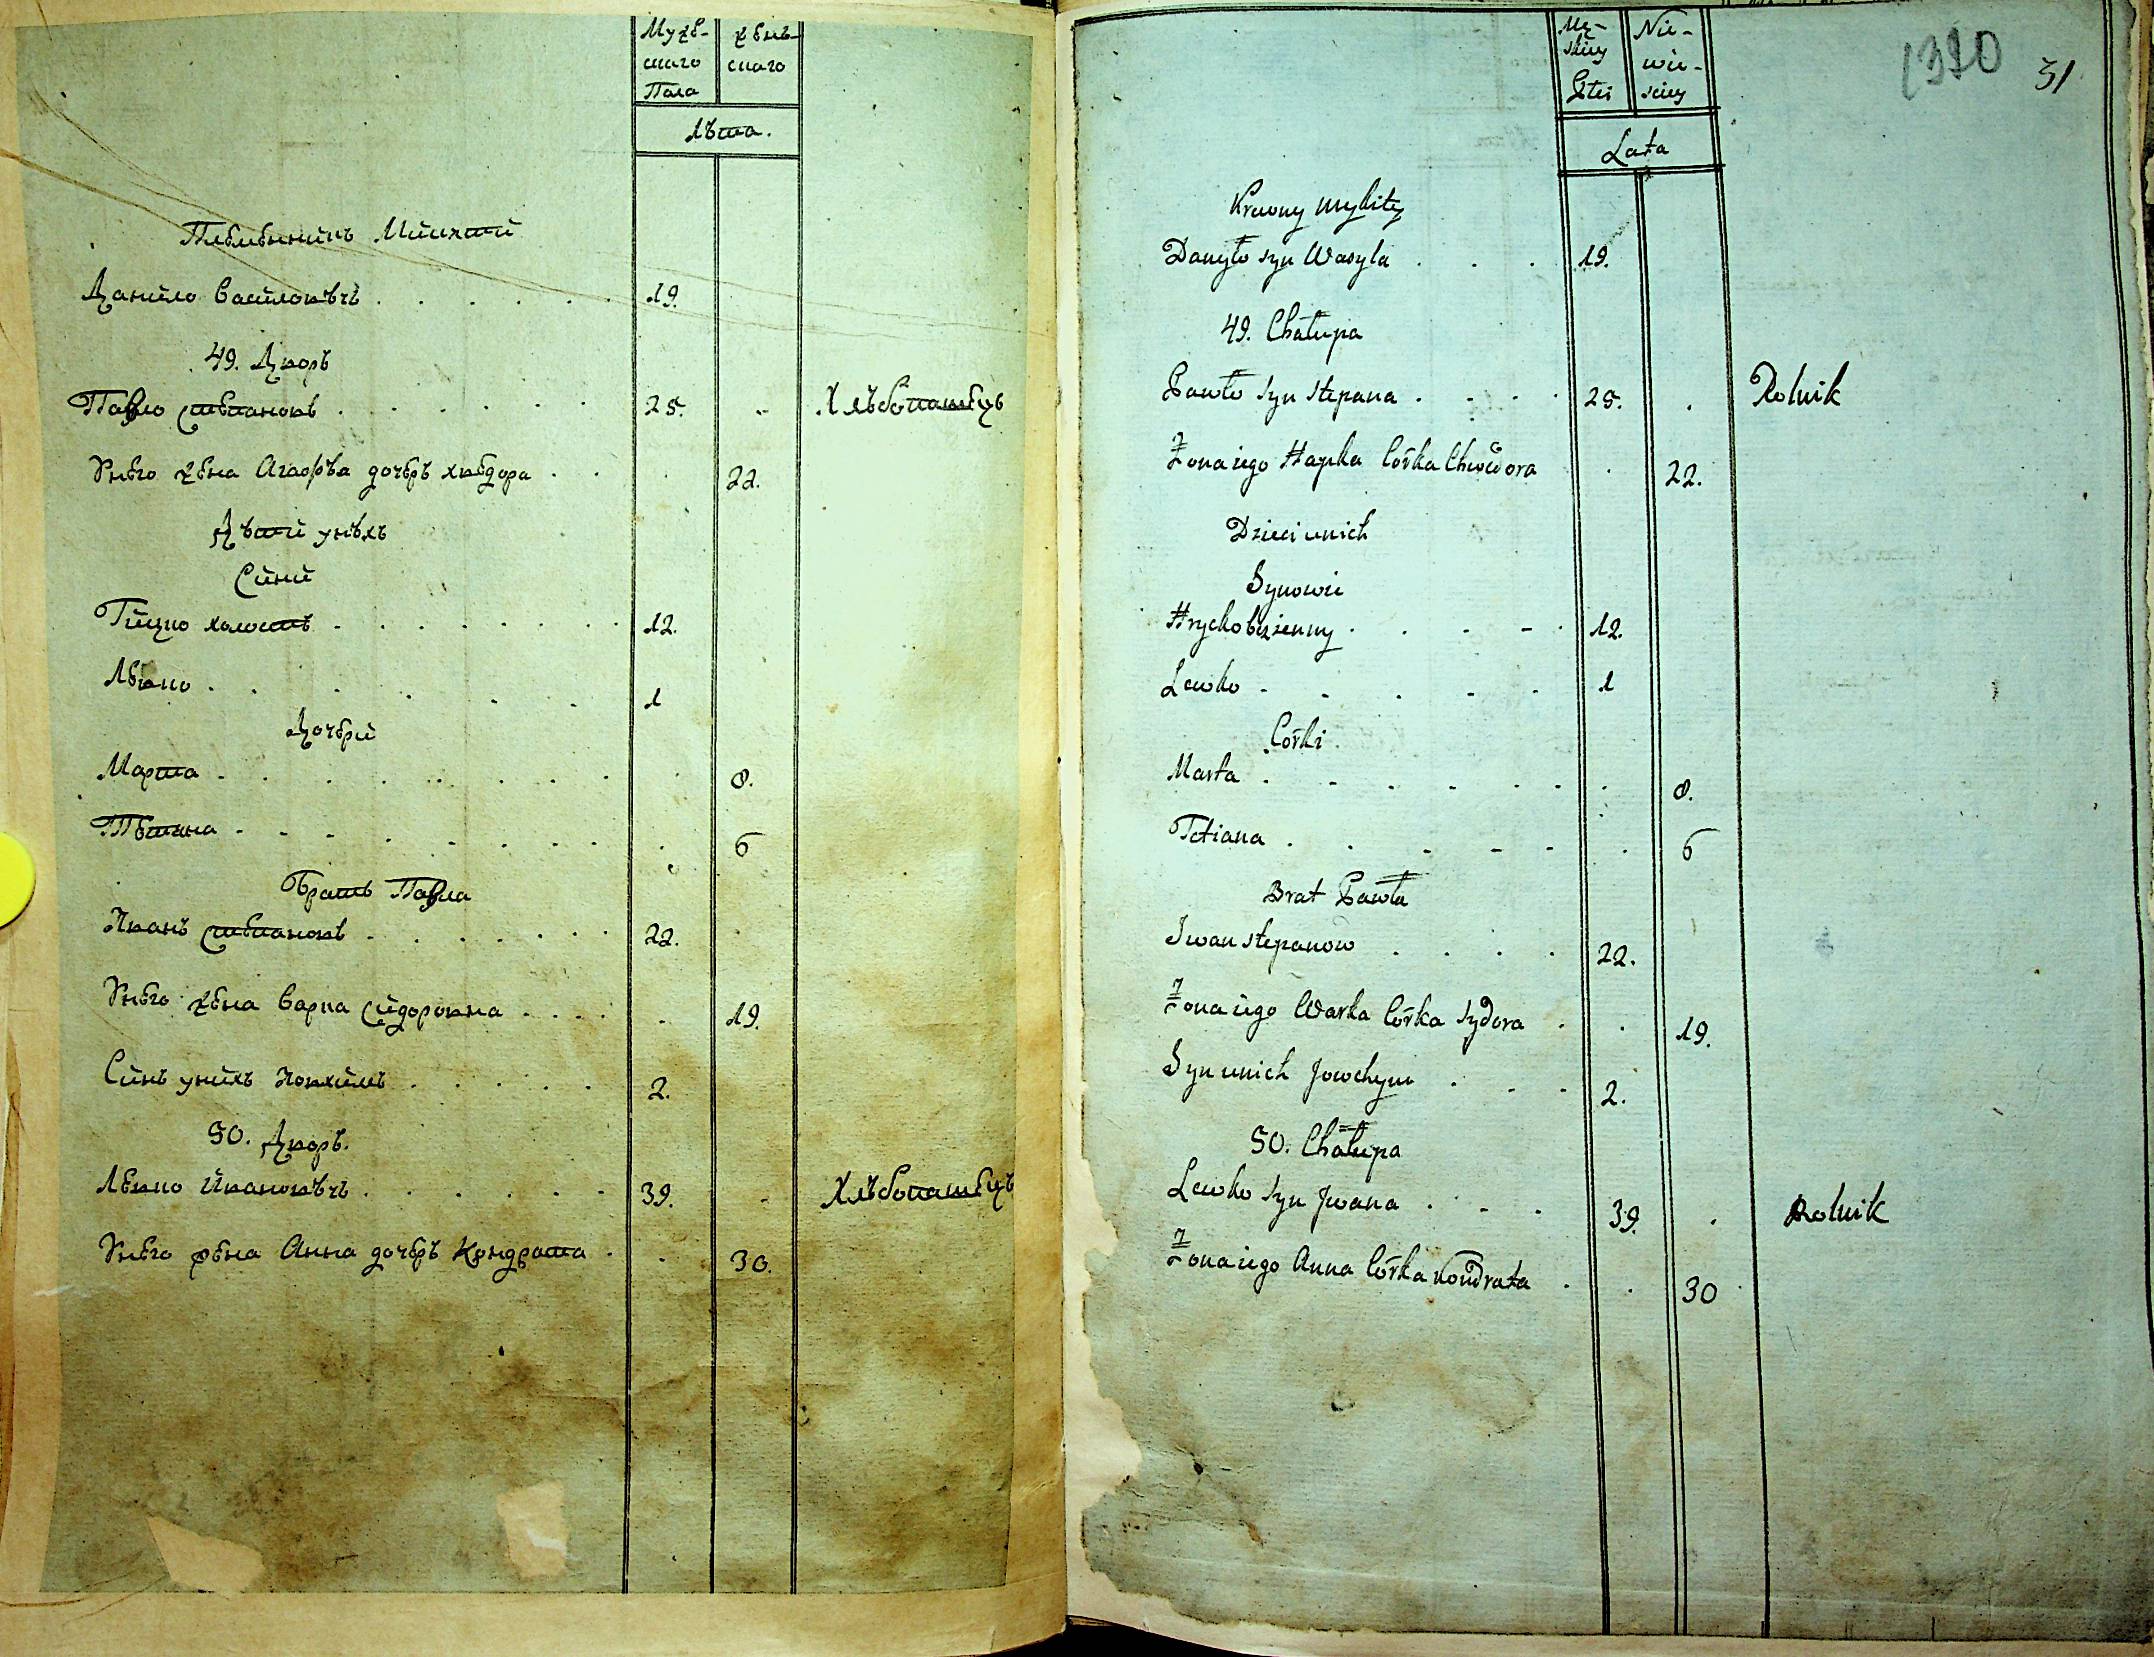 Мужε-
скаго
Пола
женъ-
скаго
лѣта.
Племенникъ Микити
Данило Василовичъ . . . . . . 19.
49. Дворъ
Павло Степановъ . . . . . . 25. Хлѣбопашецъ
Унего жена Агафѣа дочерь хведора . . . 22.
Дѣти унихъ
Сини
Грицко холостъ . . . . . . . 12.
Левко . . . . . . 1
Дочери
Марта . . . . . . . . 8.
Тетяна . . . . . . . . 6
Братъ Павла
Иванъ Степановъ . . . . . . 22.
Унего жена Варка Сидоровна . . . . . 19.
Синъ унихъ Иовхимъ . . . . . 2.
50. Дворъ.
Левко Ивановичъ . . . . . . 39. Хлѣбопашецъ
Унего жена Анна дочерь Кондрата . . 30.
1390
31
Mę-
skiey
Płci
Nie-
wie-
sciey
Lata
Krewny Mykity
Danyło syn Wasyla . . . 19.
49. Chałupa
Pawło syn stepana . . . . 25. . Rolnik
Żona iego Hapka Córka Chwedora . 22.
Dzieci unich
Synowie
Hrycko bezżenny . . . . . 12.
Lewko . . . . . 1
Córki
Marta . . . . . . . 8.
Tetiana . . . . . . 6
Brat Pawła
Iwan stepanow . . . . 22.
Żona iego Warka Córka sydora . . 19.
Syn unich Jowchym . . . 2.
50. Chałupa
Lewko syn Jwana . . . 39. . Rolnik
Żona iego Anna Córka Kondrata . . 30